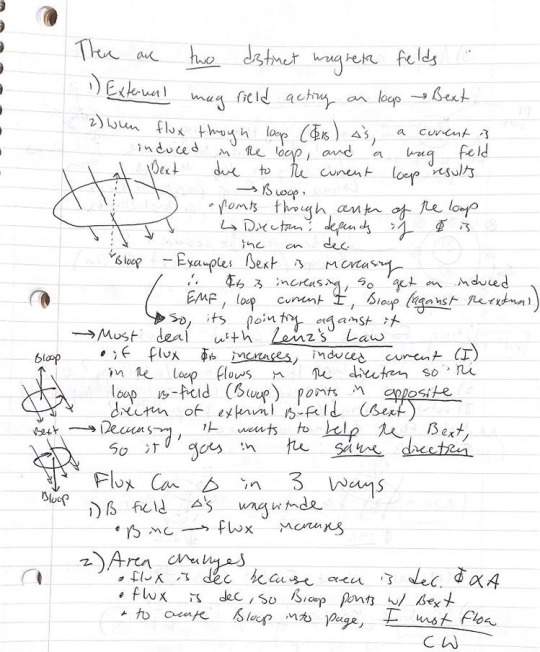 There are two distinct magnetic fields
1) External mag field acting on loop → Bext
2) When flux through loop (ΦB) Δ's, a current is
induced in the loop, and a mag field
Bext due to the current loop results
→ Bloop.
• points through center of the loop
↳ Direction: depends if Φ is
inc or dec.
Bloop
- Examples Bext is increasing
∴ ΦB is increasing, so get an induced
EMF, loop current I, Bloop (against the external)
So, its pointing against it
→ Must deal with Lenz's Law
Bloop
• if flux ΦB increases, induced current (I)
in the loop flows in the direction so the
loop B-field (Bloop) points in opposite
direction of external B-field (Bext)
Bext → Decreasing, it wants to help the Bext,
so it goes in the same direction
Bloop
Flux Can Δ in 3 Ways
1) B field Δ's magnitude
• B inc → flux increases
2) Area changes
• flux is dec because area is dec. Φ ∝ A
• flux is dec, so Bloop points w/ Bext
• to create Bloop into page, I must flow
CW